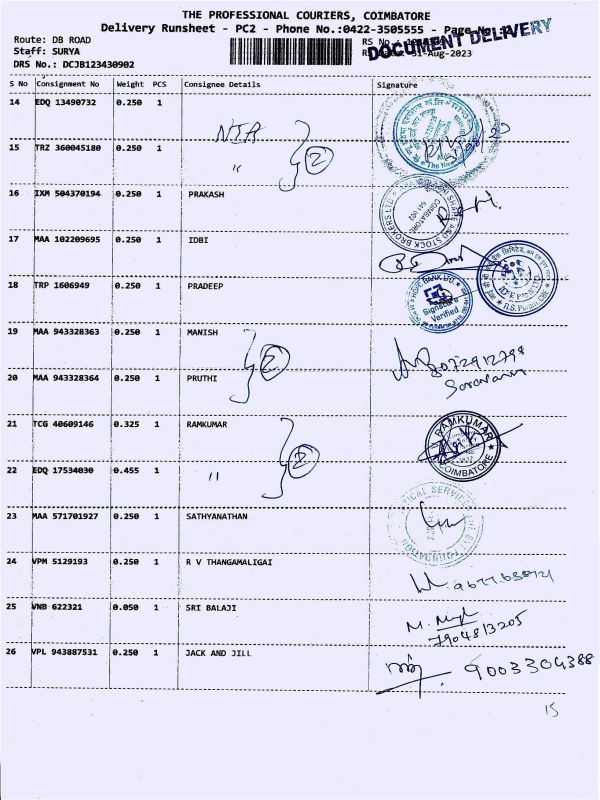 THE PROFESSIONAL COURIERS, COIMBATORE
Delivery Runsheet - PC2 - Phone No.:0422-3505555 - Page No.
Route: DB ROAD
Staff: SURYA
DRS No.: DCJB123430902
DOCUMENT DELIVERY
31-Aug-2023
S No Consignment No Weight PCS Consignee Details Signature
14 EDQ 13490732 0.250 1 NIA
15 TRZ 360045180 0.250 1 "
2
16 IXM 504370194 0.250 1 PRAKASH
17 MAA 102209695 0.250 1 IDBI
18 TRP 1606949 0.250 1 PRADEEP
HSBC BANK LTD
Signature Verified
19 MAA 943328363 0.250 1 MANISH
2
20 MAA 943328364 0.250 1 PRUTHI
8072912798
Saravanan
21 TCG 40609146 0.325 1 RAMKUMAR
2
RAMKUMAR
COIMBATORE
22 EDQ 17534030 0.455 1 "
23 MAA 571701927 0.250 1 SATHYANATHAN
24 VPM 5129193 0.250 1 R V THANGAMALIGAI
25 VNB 622321 0.050 1 SRI BALAJI
7904813205
26 VPL 943887531 0.250 1 JACK AND JILL
9003304388
15